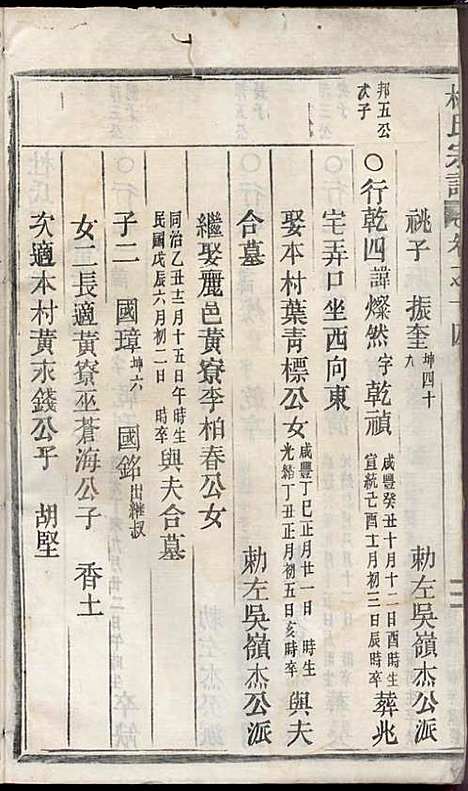 杜氏宗譜
祧子 振奎 坤四十九 勅左吳嶺杰公派
邦五公次子
○行乾四諱燦然字乾禎 咸豐癸丑十月十二日酉時生 宣統己酉十月初三日辰時卒 葬兆
宅弄口坐西向東
娶本村葉青標公女 咸豐丁巳正月廿一日 時生 光緒丁丑正月初五日亥時卒 與夫
合墓 勅左吳嶺杰公派
繼娶麗邑黃寮李柏春公女
同治乙丑十二月十五日午時生 民國戊辰六月初二日 時卒 與夫合墓
子二 國璋 坤六 國銘 出繼叔
女二長適黃寮巫蒼海公子 香土
次適本村黃永錢公子 胡堅